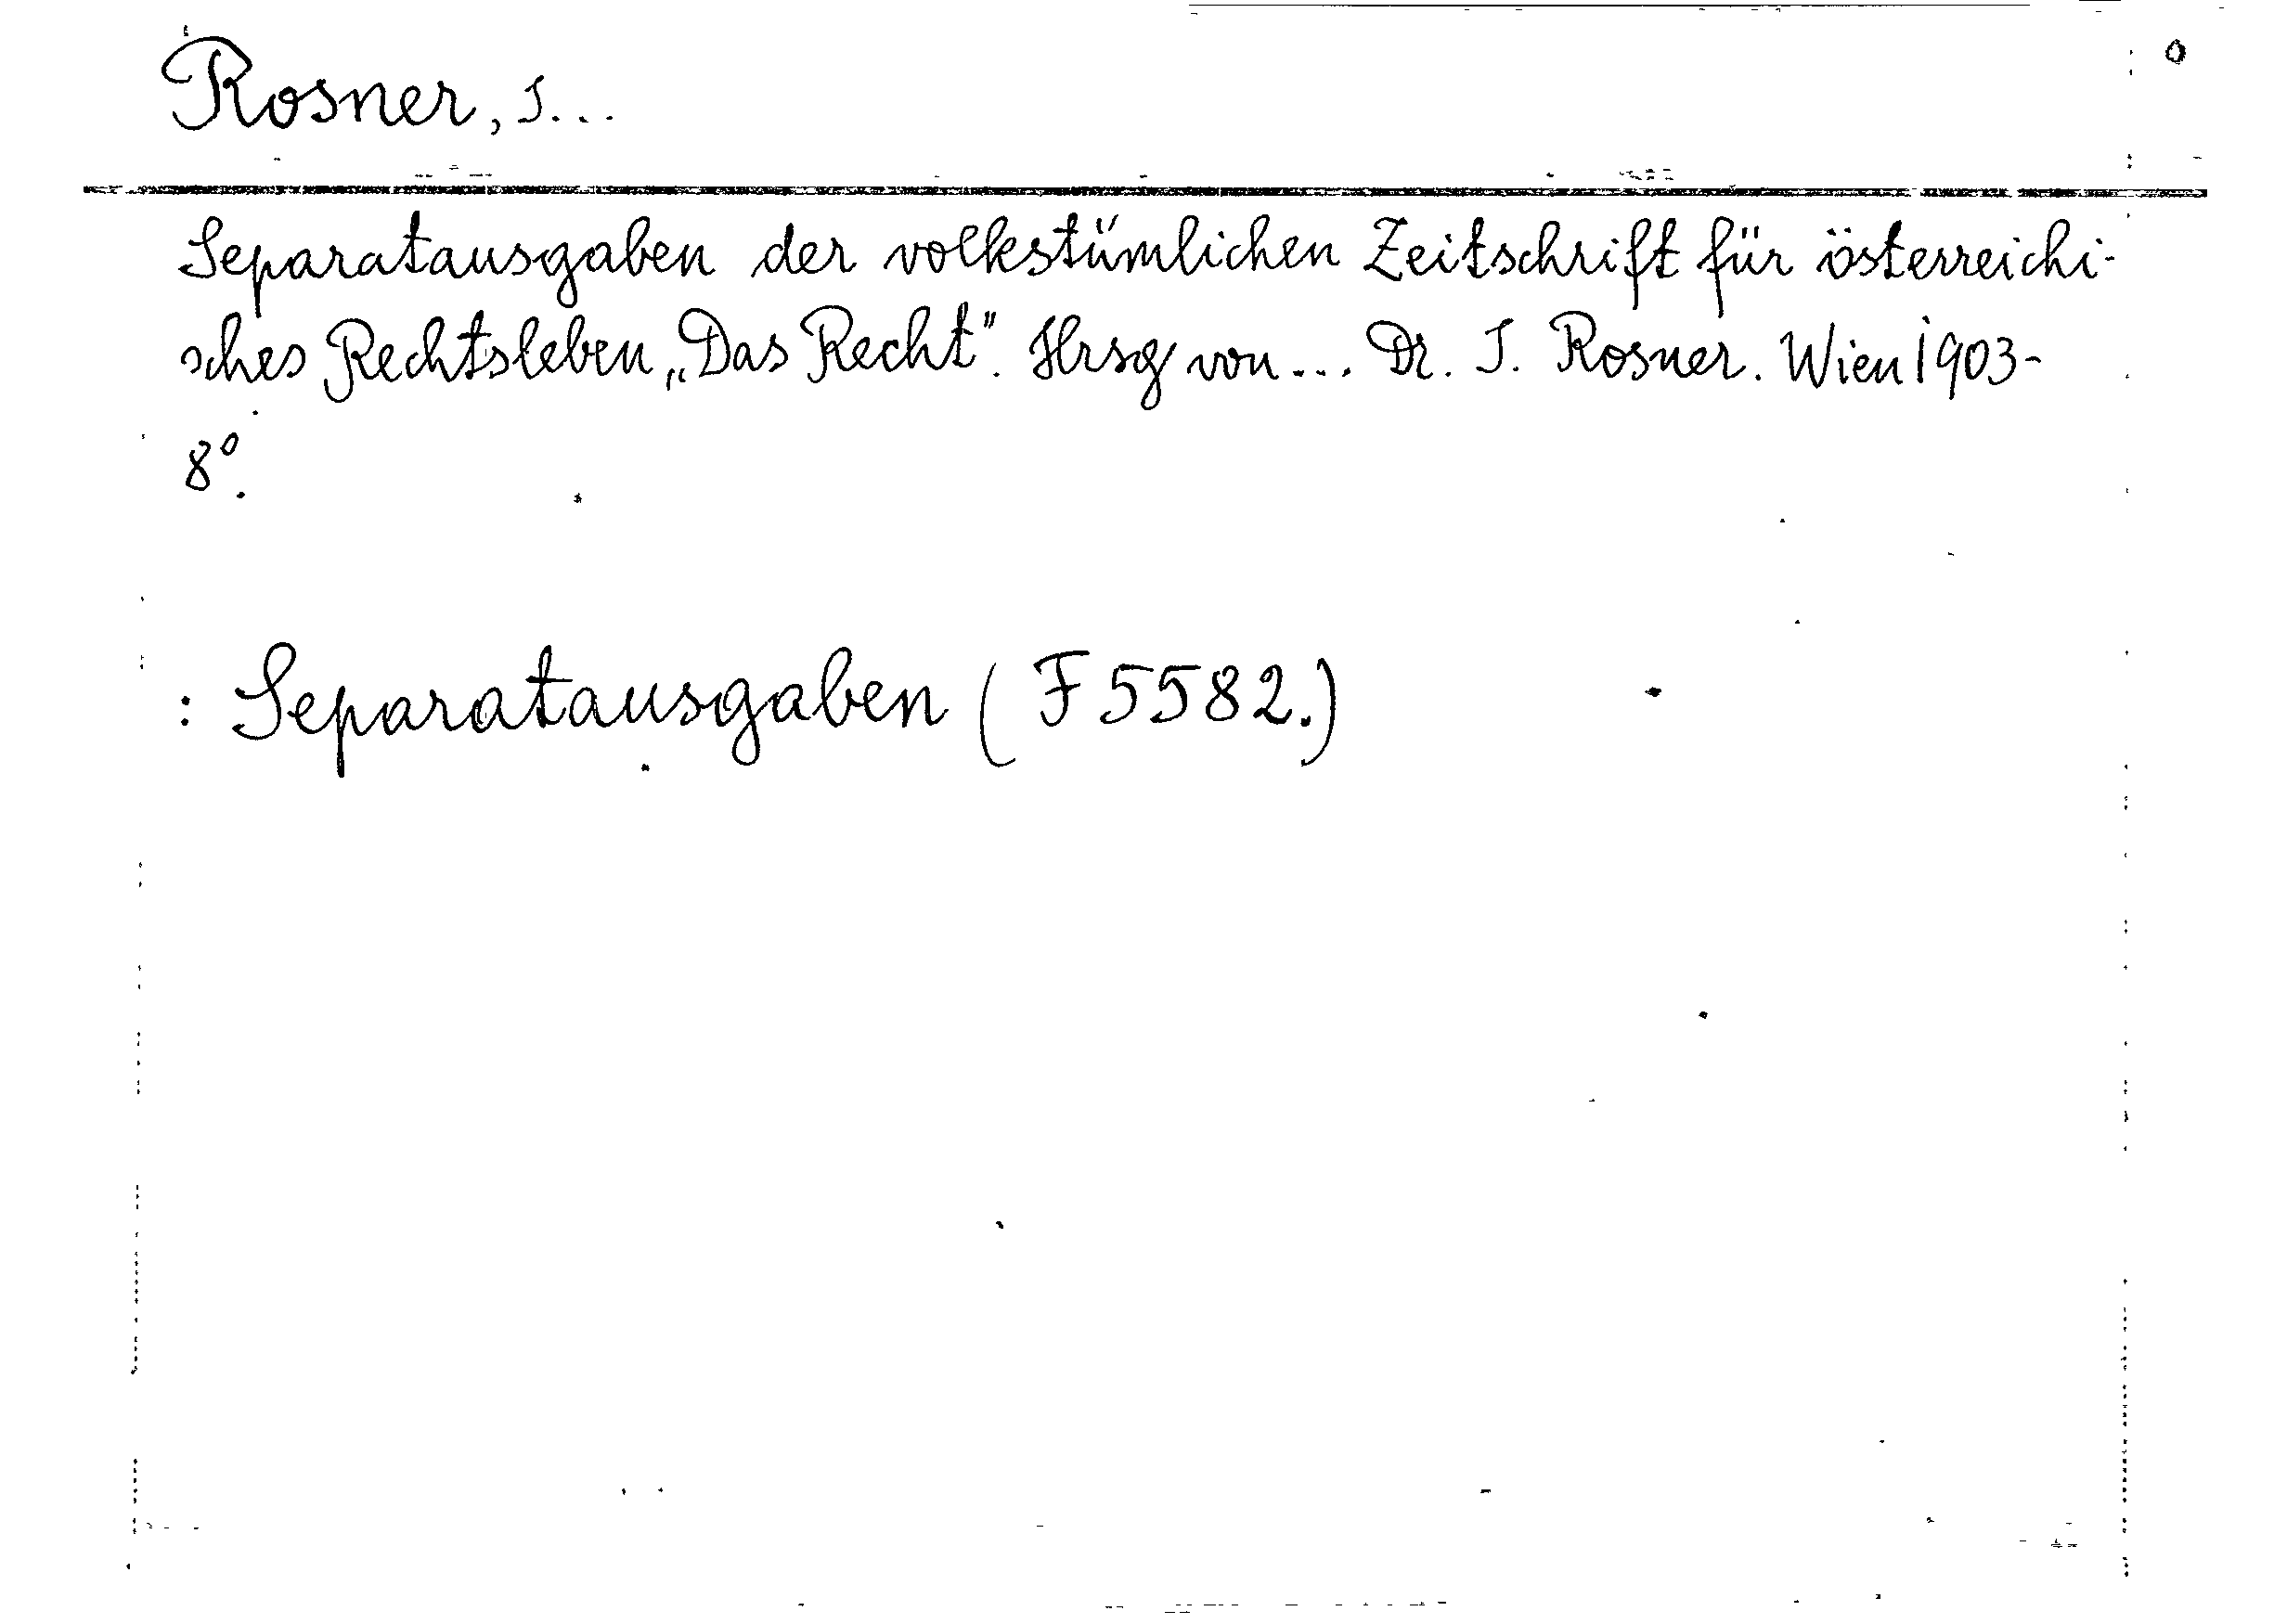 Rosner, J...
o
Separatausgaben der volkstümlichen Zeitschrift für österreichi-
sches Rechtsleben „Das Recht". Hrsg von... Dr. J. Rosner. Wien 1903-
8°.
: Separatausgaben (F 5582.)